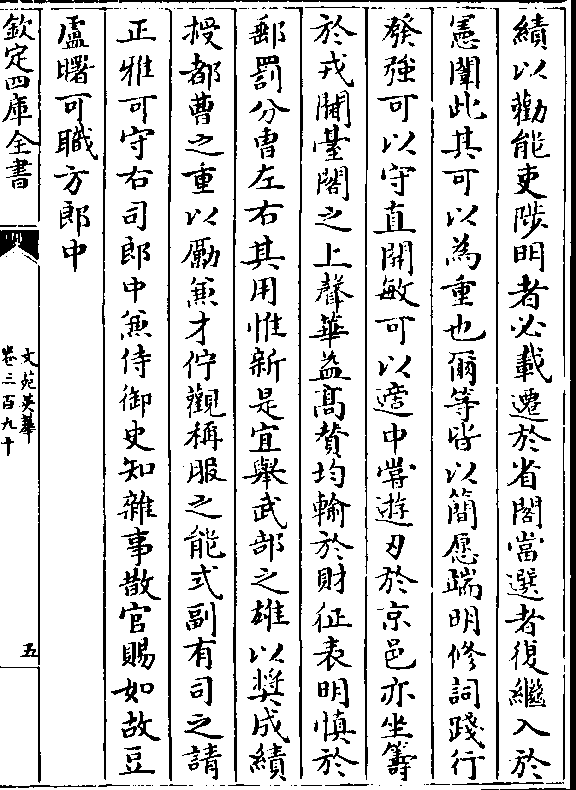 績以勸能吏陟明者必載遷於省閣當選者復繼入於
憲闈此其可以為重也爾等皆以簡愿端明修詞踐行
發強可以守直開敏可以適中嘗遊刃於京邑亦坐籌
於戎闑臺閣之上聲華益高賛均輸於財征表明慎於
郵罰分曹左右其用惟新是宜舉武部之雄以奬成績
授都曹之重以勵兼才佇觀稱服之能式副有司之請
正雅可守右司郎中兼侍御史知雜事散官賜如故豆
盧曙可職方郎中
欽定四庫全書
文苑英華
卷三百九十
五